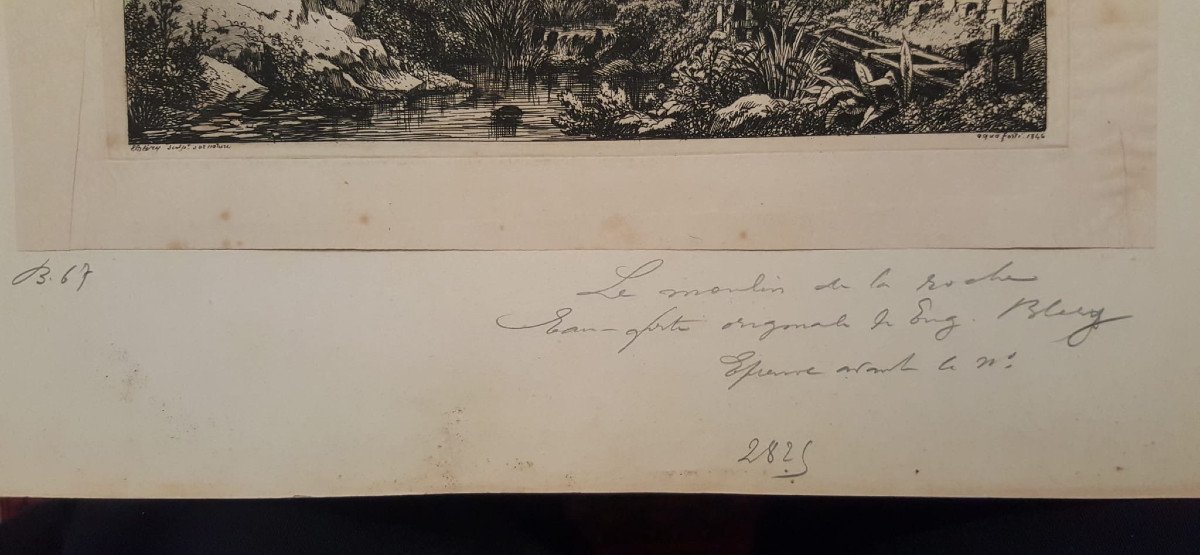 Eug. Bléry sculpt. s. nature.
aqua forti. 1846
B. 67
Le moulin de la roche
Eau-forte originale de Eug. Bléry
Epreuve avant le n°